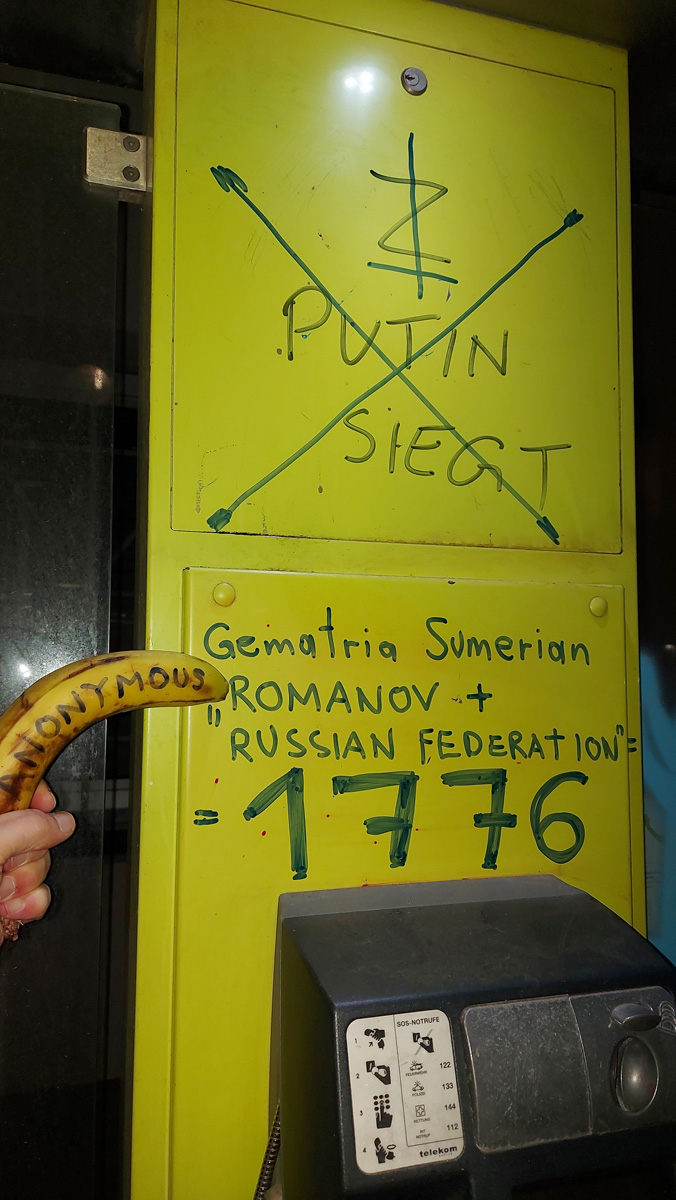 Z
PUTIN
SIEGT
Gematria Sumerian
„ROMANOV +
RUSSIAN FEDERATION"=
=1776
ANONYMOUS
SOS-NOTRUFE
1
2
3
4
FEUERWEHR 122
POLIZEI 133
RETTUNG 144
INT. NOTRUF 112
telekom